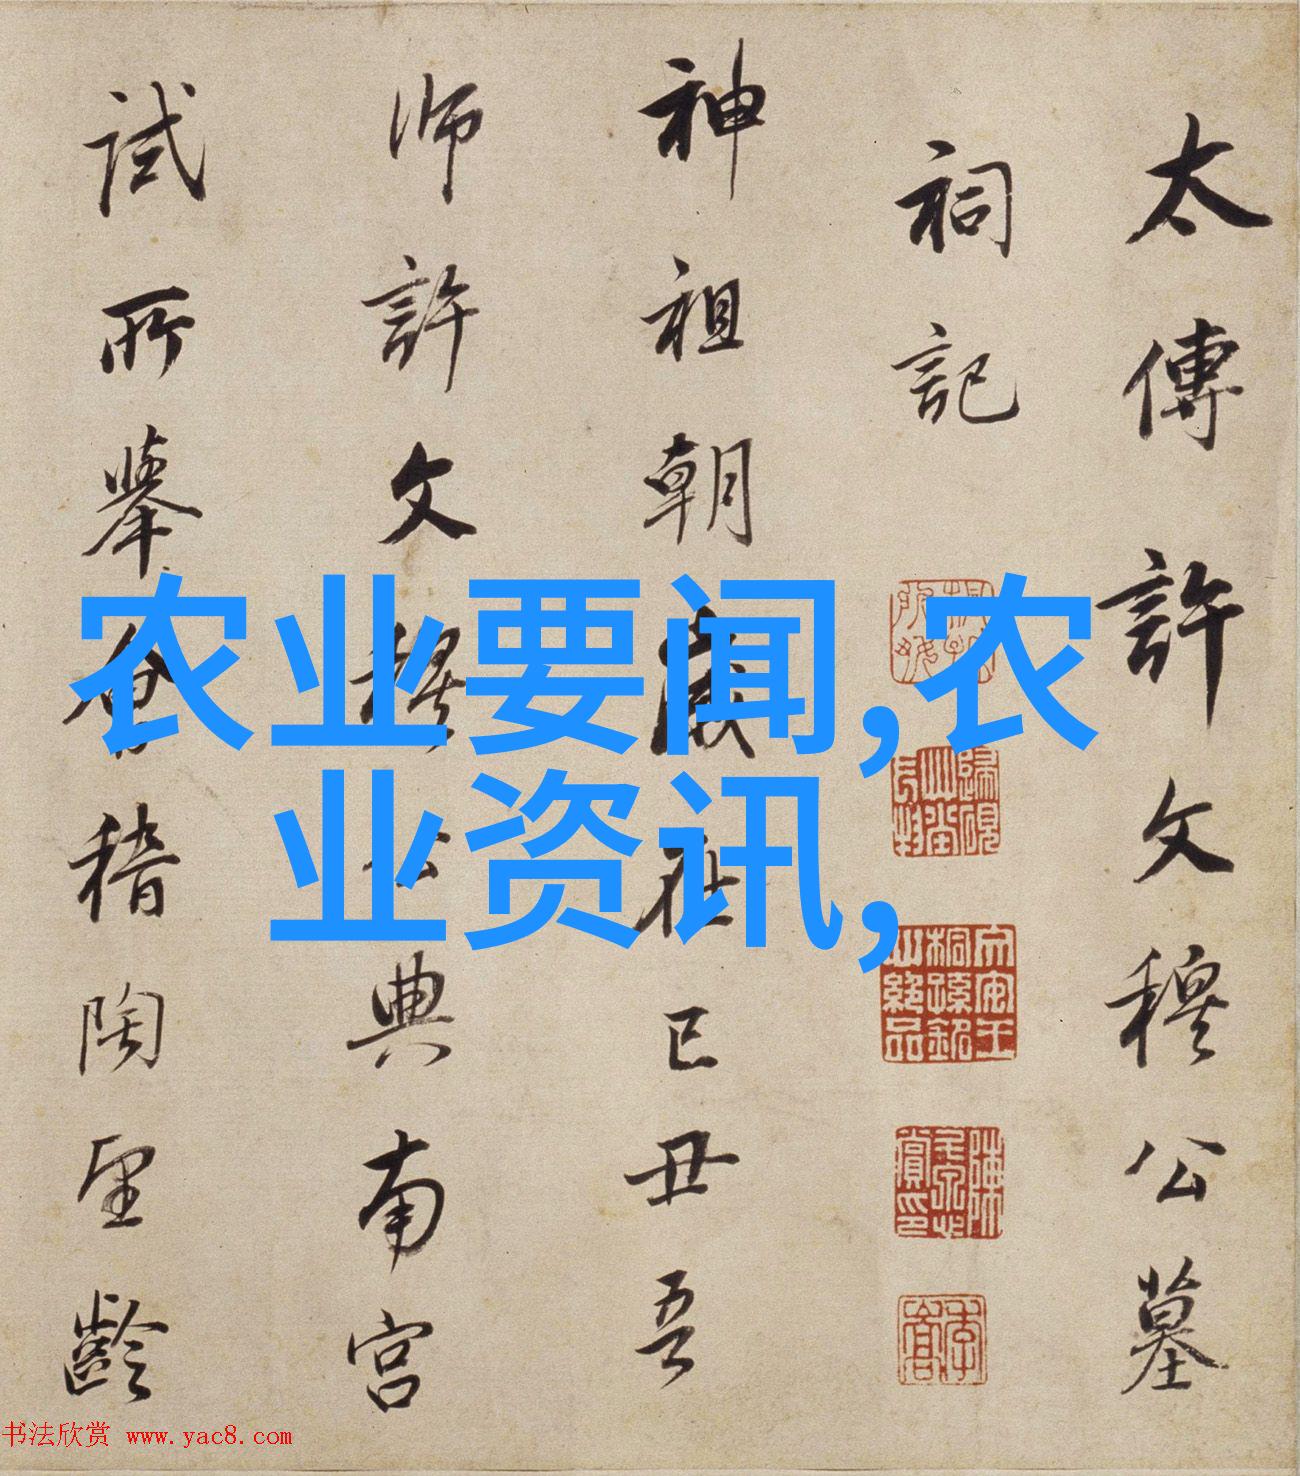 太傳許文穆公墓
祠記
神祖朝歲在己丑吾
師許文穆公典南宮
試所舉會稽陶望齡
农业要闻,农
业资讯,
书法欣赏 www.yac8.com